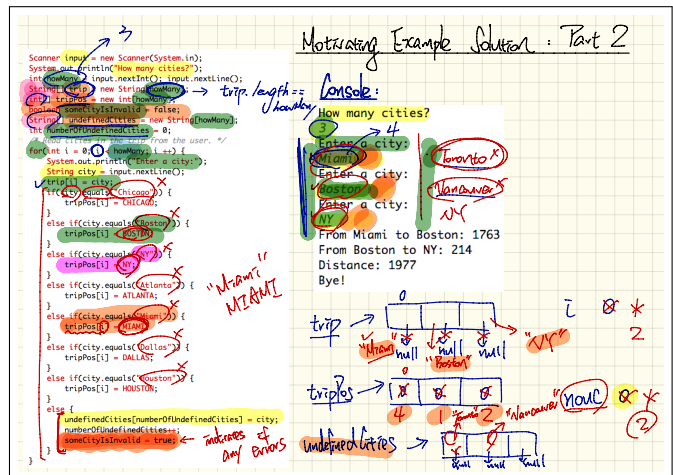 Motivating Example Solution : Part 2
3
Scanner input = new Scanner(System.in);
System.out.println("How many cities?");
int howMany = input.nextInt(); input.nextLine();
String[] trip = new String[howMany];
int[] tripPos = new int[howMany];
boolean someCityIsInvalid = false;
String[] undefinedCities = new String[howMany];
int numberOfUndefinedCities = 0;
/* Read cities in the trip from the user. */
for(int i = 0; i < howMany; i ++) {
System.out.println("Enter a city:");
String city = input.nextLine();
trip[i] = city;
if(city.equals("Chicago")) {
tripPos[i] = CHICAGO;
}
else if(city.equals("Boston")) {
tripPos[i] = BOSTON;
}
else if(city.equals("NY")) {
tripPos[i] = NY;
}
else if(city.equals("Atlanta")) {
tripPos[i] = ATLANTA;
}
else if(city.equals("Miami")) {
tripPos[i] = MIAMI;
}
else if(city.equals("Dallas")) {
tripPos[i] = DALLAS;
}
else if(city.equals("Houston")) {
tripPos[i] = HOUSTON;
}
else {
undefinedCities[numberOfUndefinedCities] = city;
numberOfUndefinedCities++;
someCityIsInvalid = true;
}
}
trip.length == howMany
"Miami"
MIAMI
indicates if
any errors
Console:
How many cities?
3 4
Enter a city:
Miami Toronto
Enter a city:
Boston Vancouver
Enter a city:
NY NY
From Miami to Boston: 1763
From Boston to NY: 214
Distance: 1977
Bye!
0
trip i 0
2
"Miami" null "Boston" null null "NY"
0
tripPos
4 1 2
"Vancouver" nouc 0
2
undefinedCities
null null null